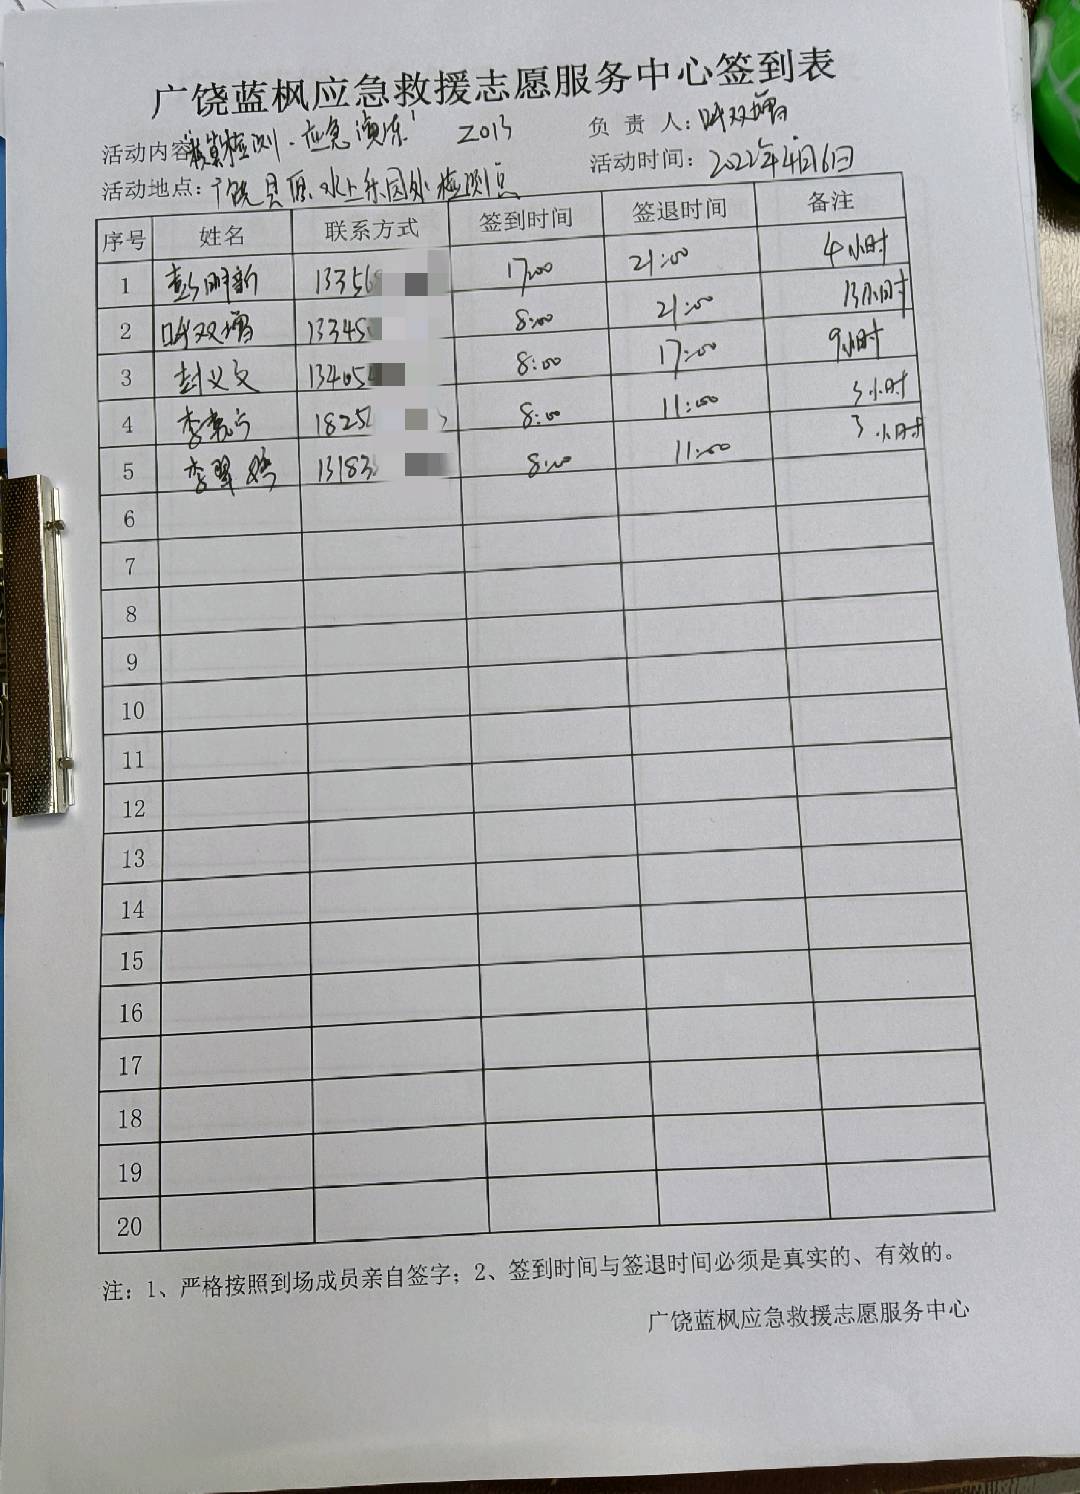 广饶蓝枫应急救援志愿服务中心签到表
活动内容"核算检测·应急演练" 2013 负 责 人: 双增
活动地点:广饶县原水上乐园处检测点 活动时间:2022年4月6日
序号 姓名 联系方式 签到时间 签退时间 备注
1 彭明新 13356 17:00 21:00 4小时
2 双增 13345 8:00 21:00 13小时
3 封义文 13405 8:00 17:00 9小时
4 李 1825 8:00 11:00 3小时
5 李翠 13183 8:00 11:00 3小时
6
7
8
9
10
11
12
13
14
15
16
17
18
19
20
注:1、严格按照到场成员亲自签字;2、签到时间与签退时间必须是真实的、有效的。
广饶蓝枫应急救援志愿服务中心